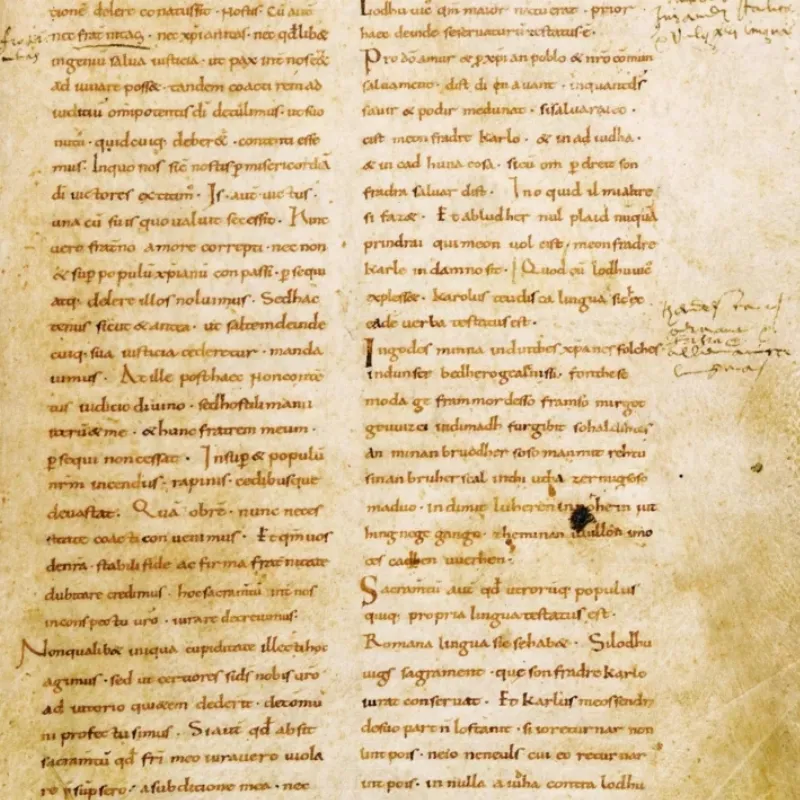 tione delere conatus sit nostis. Cu aut
nec fraternitas. nec xpianitas. nec qdlibet
ingeniu salua iusticia. ut pax int nos eet.
adiuuare posset. tandem coacti rem ad
iuditiu omnipotentis di detulimus. ut suo
nutu. quid cuiq; deberet. contenti esse
mus. In quo nos sic nostis p misericordia
di uictores extitim. Is aut uictus.
una cu suis quo ualuit secessit. Hinc
uero fraterno amore correpti. nec non
& sup populu xpianu conpassi. p sequi
atq; delere illos noluimus. Sed hac
tenus sicut & antea. ut saltem deinde
cuiq; sua iusticia cederetur. manda
uimus. At ille post haec non conten
tus iudicio diuino. sed hostili manu
iteru & me. & hunc fratrem meum.
p sequi non cessat. Insup & populu
nrm incendiis. rapinis. cedibusque
deuastat. Qua obre. nunc neces
sitate coacti conuenimus. Et qm uos
de nra stabili fide ac firma fraternitate
dubitare credimus. hoc sacramtu int nos
in conspectu uro. iurare decreuimus.
Non qualibet iniqua cupiditate illecti hoc
agimus. sed ut certiores si ds nobis uro
ad iutorio quietem dederit. de comu
ni profectu simus. Si aut qd absit
sacramtu qd fri meo iurauero uiola
re psupsero. a subditione mea. nec
Lodhuuic qm maior natu erat. prior
haec deinde se seruaturu testatus e.
Pro do amur & p xpian poblo & nro comun
saluament. dist di en auant. inquantds
sauir & podir medunat. sisaluaraieo.
cist meon fradre Karlo. & in ad iudha.
& in cad huna cosa. sicu om p dreit son
fradra saluar dist. Ino quid il mialtre
si faz&. Et abludher nul plaid nuqua
prindrai qui meon uol cist. meon fradre
Karle in damno sit. Quod cu Lodhuuic
explesset. Karolus teudisca lingua sic hec
eade uerba testatus est.
Ingodes minna indinthes xpanes folches
indunser bedhero gealtnissi. fonthese
moda ge frammordesso framso mirgot
geuuizci indimadh furgibit sohaldihtes
an minan bruodher soso man mit rehtu
sinan bruher scal inthi utha zermigsoso
maduo. indimit luheren in nohein iut
hing nege gango. zheminan uuillon imo
ces cadhen uuerhen.
Sacramtu aut qd utrorumq; populus
quiq; propria lingua testatus est.
Romana lingua sic se habet. Silodhu
uigs sagrament. que son fradre Karlo
iurat conseruat. Et Karlus meossendra
desuo part n lostanit. si ioreturnar non
lint pois. neio neneuls cui eo returnar
int pois. in nulla aiuha contra lodhu